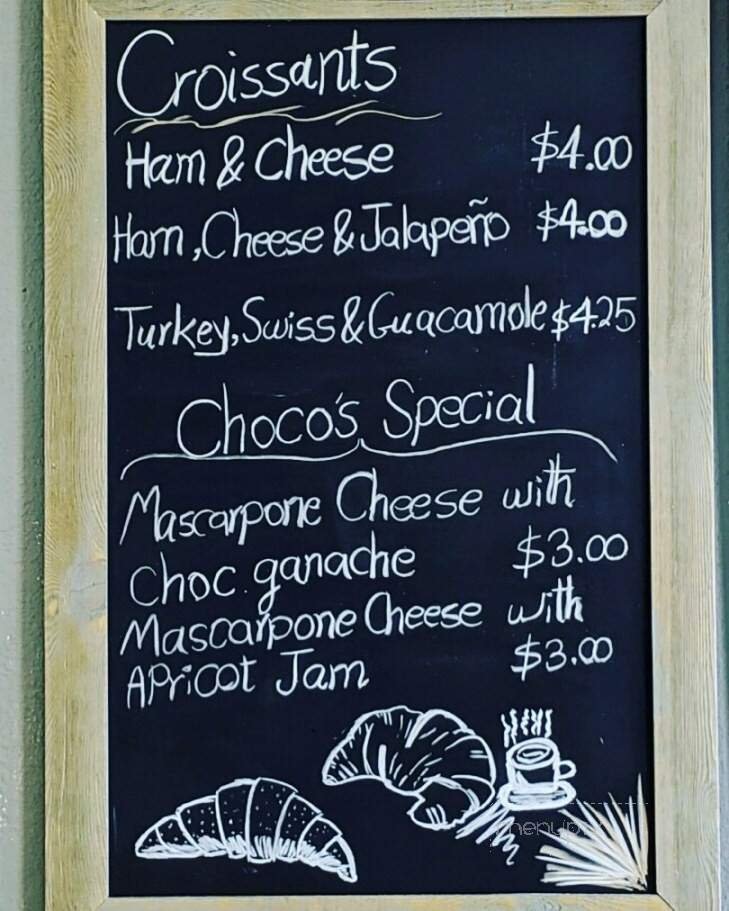 Croissants
Ham & Cheese $4.00
Ham, Cheese & Jalapeño $4.00
Turkey, Swiss & Guacamole $4.25
Choco's Special
Mascarpone Cheese with
Choc. ganache $3.00
Mascarpone Cheese with
Apricot Jam $3.00